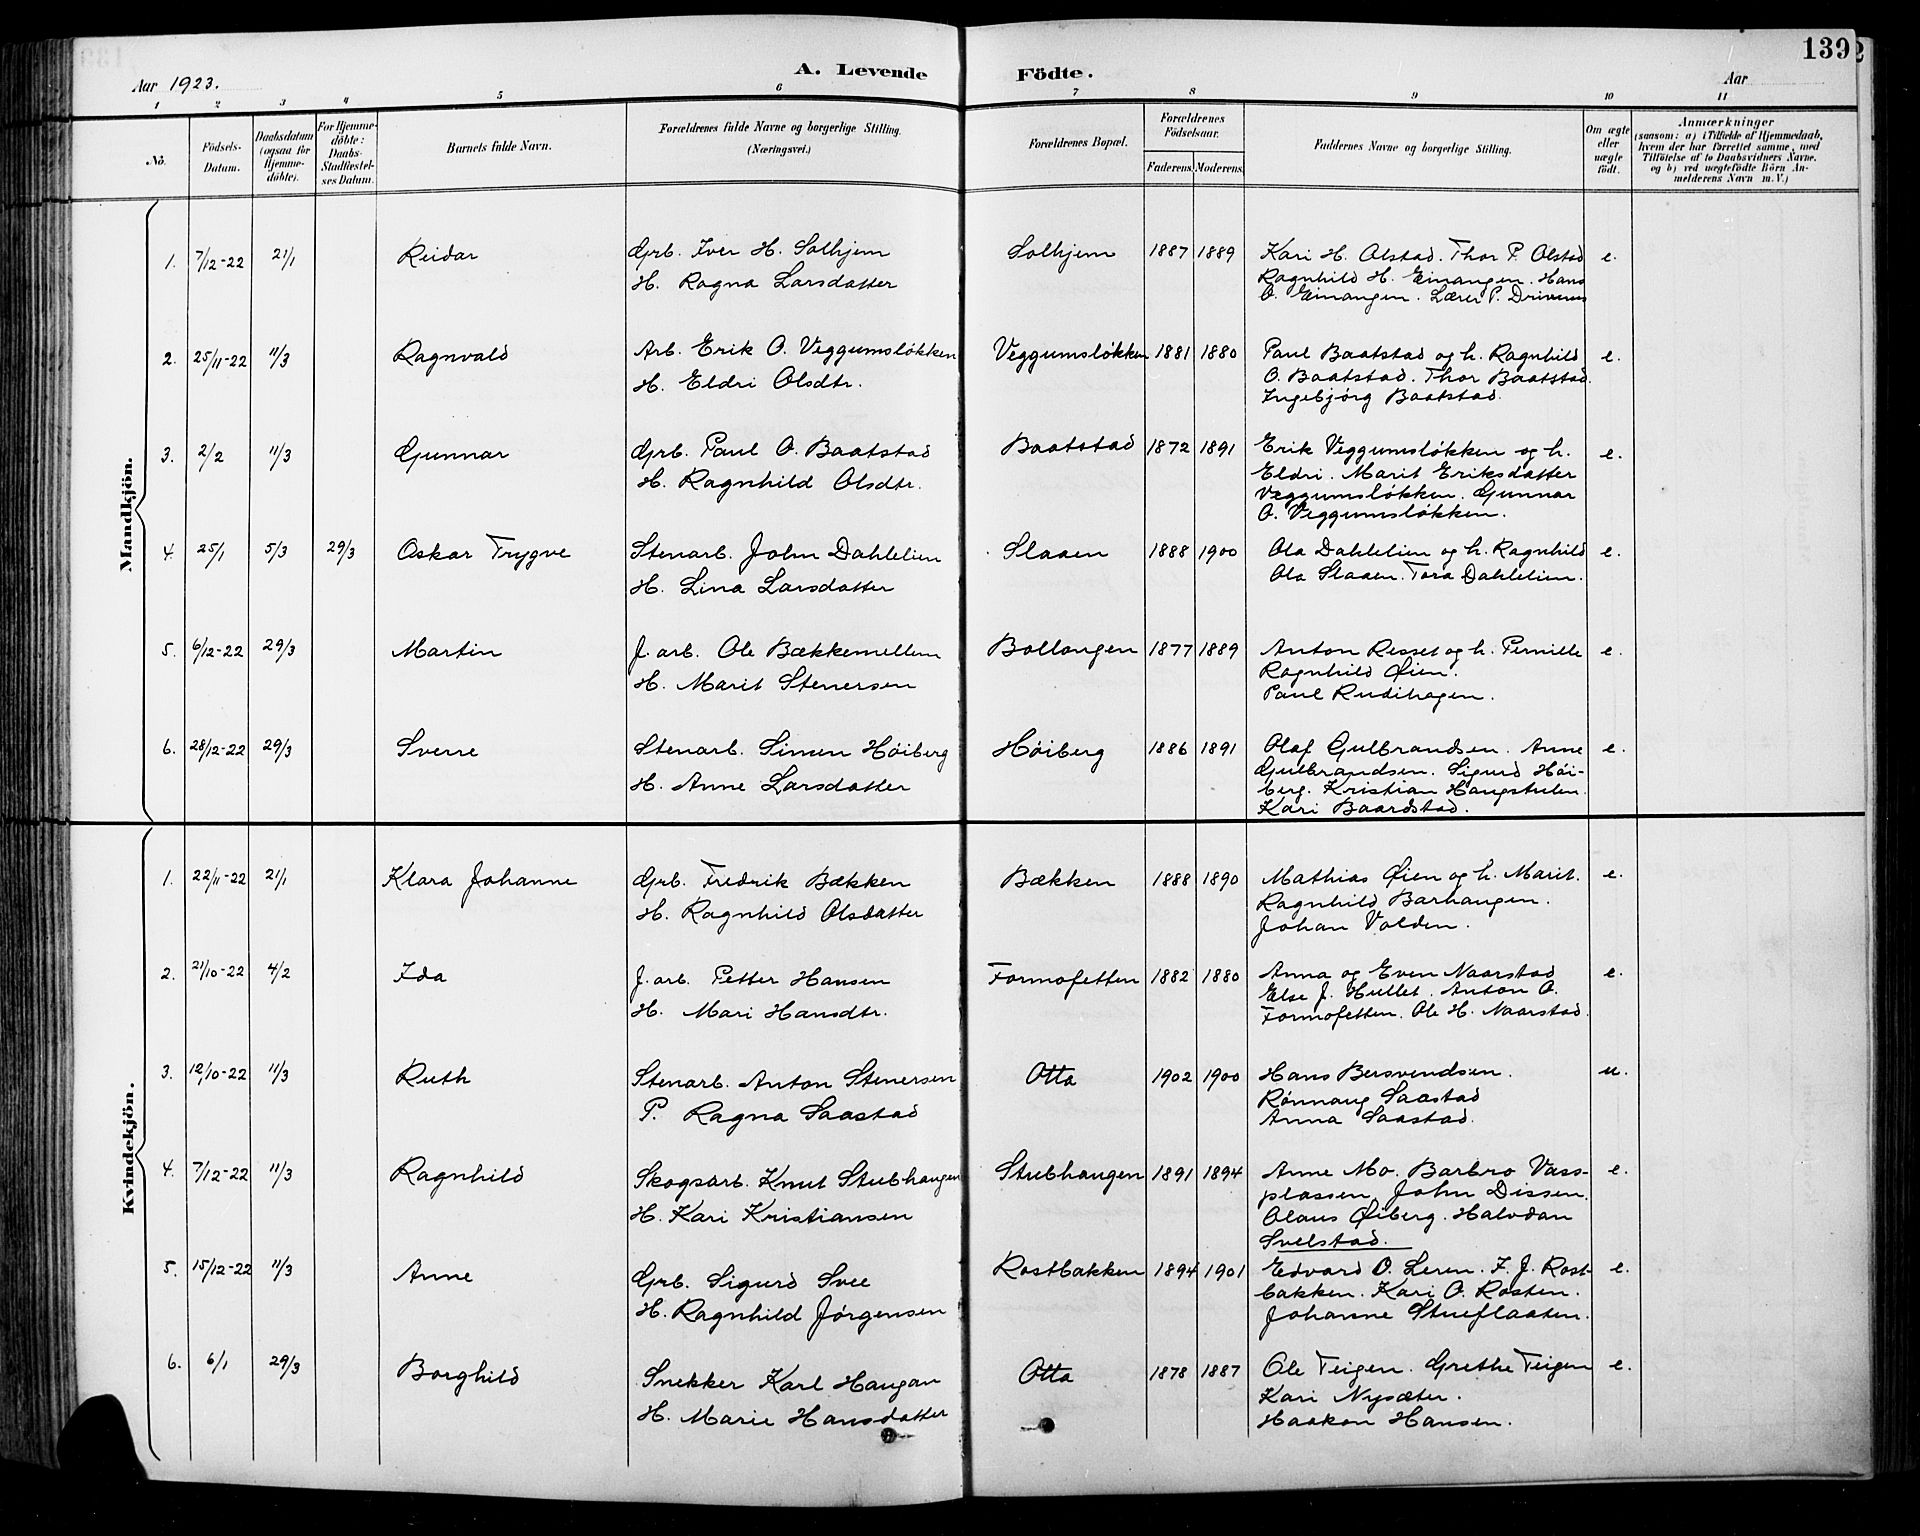 139
Aar 1923.
A. Levende Födte.
Aar
1 2 3 4 5 6 7 8 9 10 11
No.
Födsels-Datum.
Daabsdatum (ogsaa for Hjemme-döbte).
For Hjemme-döbte: Daabs-Stadfæstel-ses Datum.
Barnets fulde Navn.
Forældrenes fulde Navne og borgerlige Stilling. (Næringsvei.)
Forældrenes Bopæl.
Forældrenes Födselsaar.
Faderens. Moderens.
Faddernes Navne og borgerlige Stilling.
Om ægte eller uægte födt.
Anmærkninger
(saasom: a) i Tilfælde af Hjemmedaab, hvem der har forrettet samme, med Tilföielse af to Daabsvidners Navne, og b) ved uægtefödte Börn An-melderens Navn m. V.)
Mandkjön.
1. 7/12-22 21/1 Reidar Grb. Iver H. Solhjem Solhjem 1887 1889 Kari H. Olstad. Thor P. Olstad e.
H. Ragna Larsdatter Ragnhild H. Einangen. Hans
O. Einangen. Lærer P. Drivenes
2. 25/11-22 11/3 Ragnvald Arb. Erik O. Veggumsløkken Veggumsløkken 1881 1880 Paul Baatstad og h. Ragnhild e.
H. Eldri Olsdtr. O. Baatstad. Thor Baatstad.
Ingebjörg Baatstad.
3. 2/2 11/3 Gunnar Grb. Paul O. Baatstad Baatstad 1872 1891 Erik Veggumsløkken og h. e.
H. Ragnhild Olsdtr. Eldri. Marit Eriksdatter
Veggumsløkken. Gunnar
O. Veggumsløkken.
4. 25/1 5/3 29/3 Oskar Trygve Stenarb. John Dahlelien Slaaen 1888 1900 Ola Dahlelien og h. Ragnhild e.
H. Lina Larsdatter Ola Slaaen. Tora Dahlelien.
5. 6/12-22 29/3 Martin J. arb. Ole Bækkemellem Bollongen 1877 1889 Anton Resset og h. Pernille e.
H. Marit Stenersen Ragnhild Øien.
Paul Rudihagen.
6. 28/12-22 29/3 Sverre Stenarb. Simen Høiberg Høiberg 1886 1891 Olaf Gulbrandsen. Anne e.
H. Anne Larsdatter Gulbrandsen. Sigurd Høi-
berg. Kristian Haugstulen.
Kari Baardstad.
Kvindekjön.
1. 22/11-22 21/1 Klara Johanne Grb. Fredrik Bækken Bækken 1888 1890 Mathias Øien og h. Marit. e.
H. Ragnhild Olsdatter Ragnhild Barhaugen.
Johan Volden.
2. 21/10-22 4/2 Ida J. arb. Petter Hansen Formofetten 1882 1880 Anna og Even Naarstad e.
H. Mari Hansdtr. Else J. Hullet. Anton O.
Formofetten. Ole H. Naarstad.
3. 12/10-22 11/3 Ruth Stenarb. Anton Stenersen Otta 1902 1900 Hans Bersvendsen. u.
P. Ragna Saastad Rønnaug Saastad
Anna Saastad.
4. 7/12-22 11/3 Ragnhild Skogsarb. Knut Stubhaugen Stubhaugen 1891 1894 Anne Mo. Barbro Vass- e.
H. Kari Kristiansen plassen. John Dissen.
Olaus Øiberg. Halvdan
Svelstad.
5. 15/12-22 11/3 Anne Grb. Sigurd Svee Rostbakken 1894 1901 Edvard O. Leren. F. J. Rost- e.
H. Ragnhild Jørgensen bakken. Kari O. Rosten.
Johanne Stueflaaten.
6. 6/1 29/3 Borghild Snekker Karl Haugan Otta 1878 1887 Ole Teigen. Grethe Teigen e.
H. Marie Hansdatter Kari Nysæter.
Haakon Hansen.